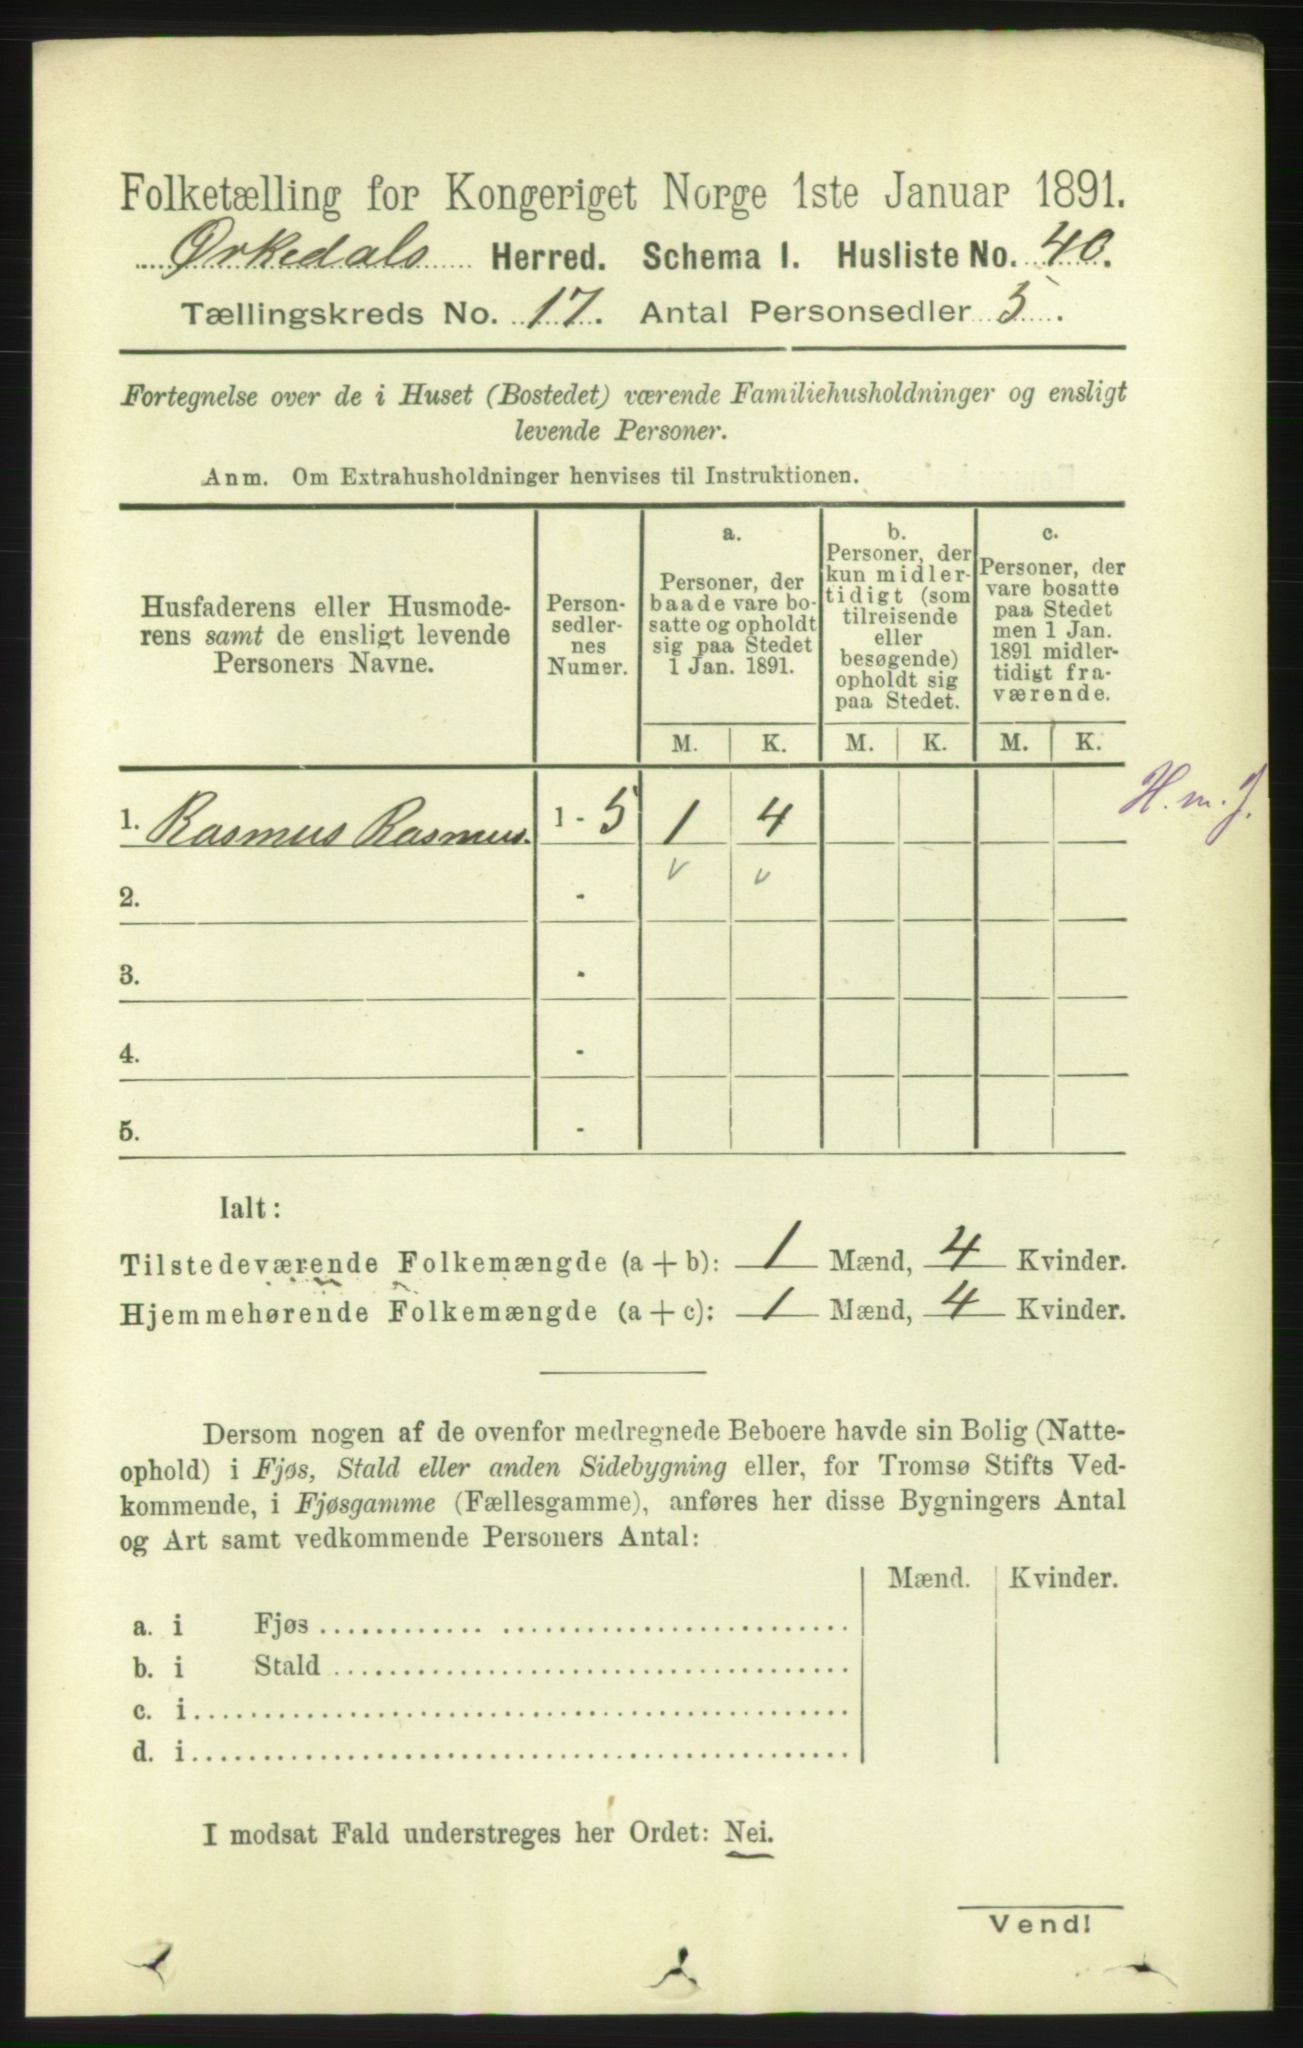 Folketælling for Kongeriget Norge 1ste Januar 1891.
Ørkedals Herred. Schema I. Husliste No. 40.
Tællingskreds No. 17. Antal Personsedler 5.
Fortegnelse over de i Huset (Bostedet) værende Familiehusholdninger og ensligt
levende Personer.
Anm. Om Extrahusholdninger henvises til Instruktionen.
Husfaderens eller Husmode-
rens samt de ensligt levende
Personers Navne.
Person-
sedler-
nes
Numer.
a.
Personer, der
baade vare bo-
satte og opholdt
sig paa Stedet
1 Jan. 1891.
b.
Personer, der
kun midler-
tidigt (som
tilreisende
eller
besøgende)
opholdt sig
paa Stedet.
c.
Personer, der
vare bosatte
paa Stedet
men 1 Jan.
1891 midler-
tidigt fra-
værende.
M. K. M. K. M. K.
1. Rasmus Rasmus. 1 - 5 1 4 H. m. J.
2. -
3. -
4. -
5. -
Ialt:
Tilstedeværende Folkemængde (a + b): 1 Mænd, 4 Kvinder.
Hjemmehørende Folkemængde (a + c): 1 Mænd, 4 Kvinder.
Dersom nogen af de ovenfor medregnede Beboere havde sin Bolig (Natte-
ophold) i Fjøs, Stald eller anden Sidebygning eller, for Tromsø Stifts Ved-
kommende, i Fjøsgamme (Fællesgamme), anføres her disse Bygningers Antal
og Art samt vedkommende Personers Antal:
Mænd. Kvinder.
a. i Fjøs
b. i Stald
c. i
d. i
I modsat Fald understreges her Ordet: Nei.
Vend!